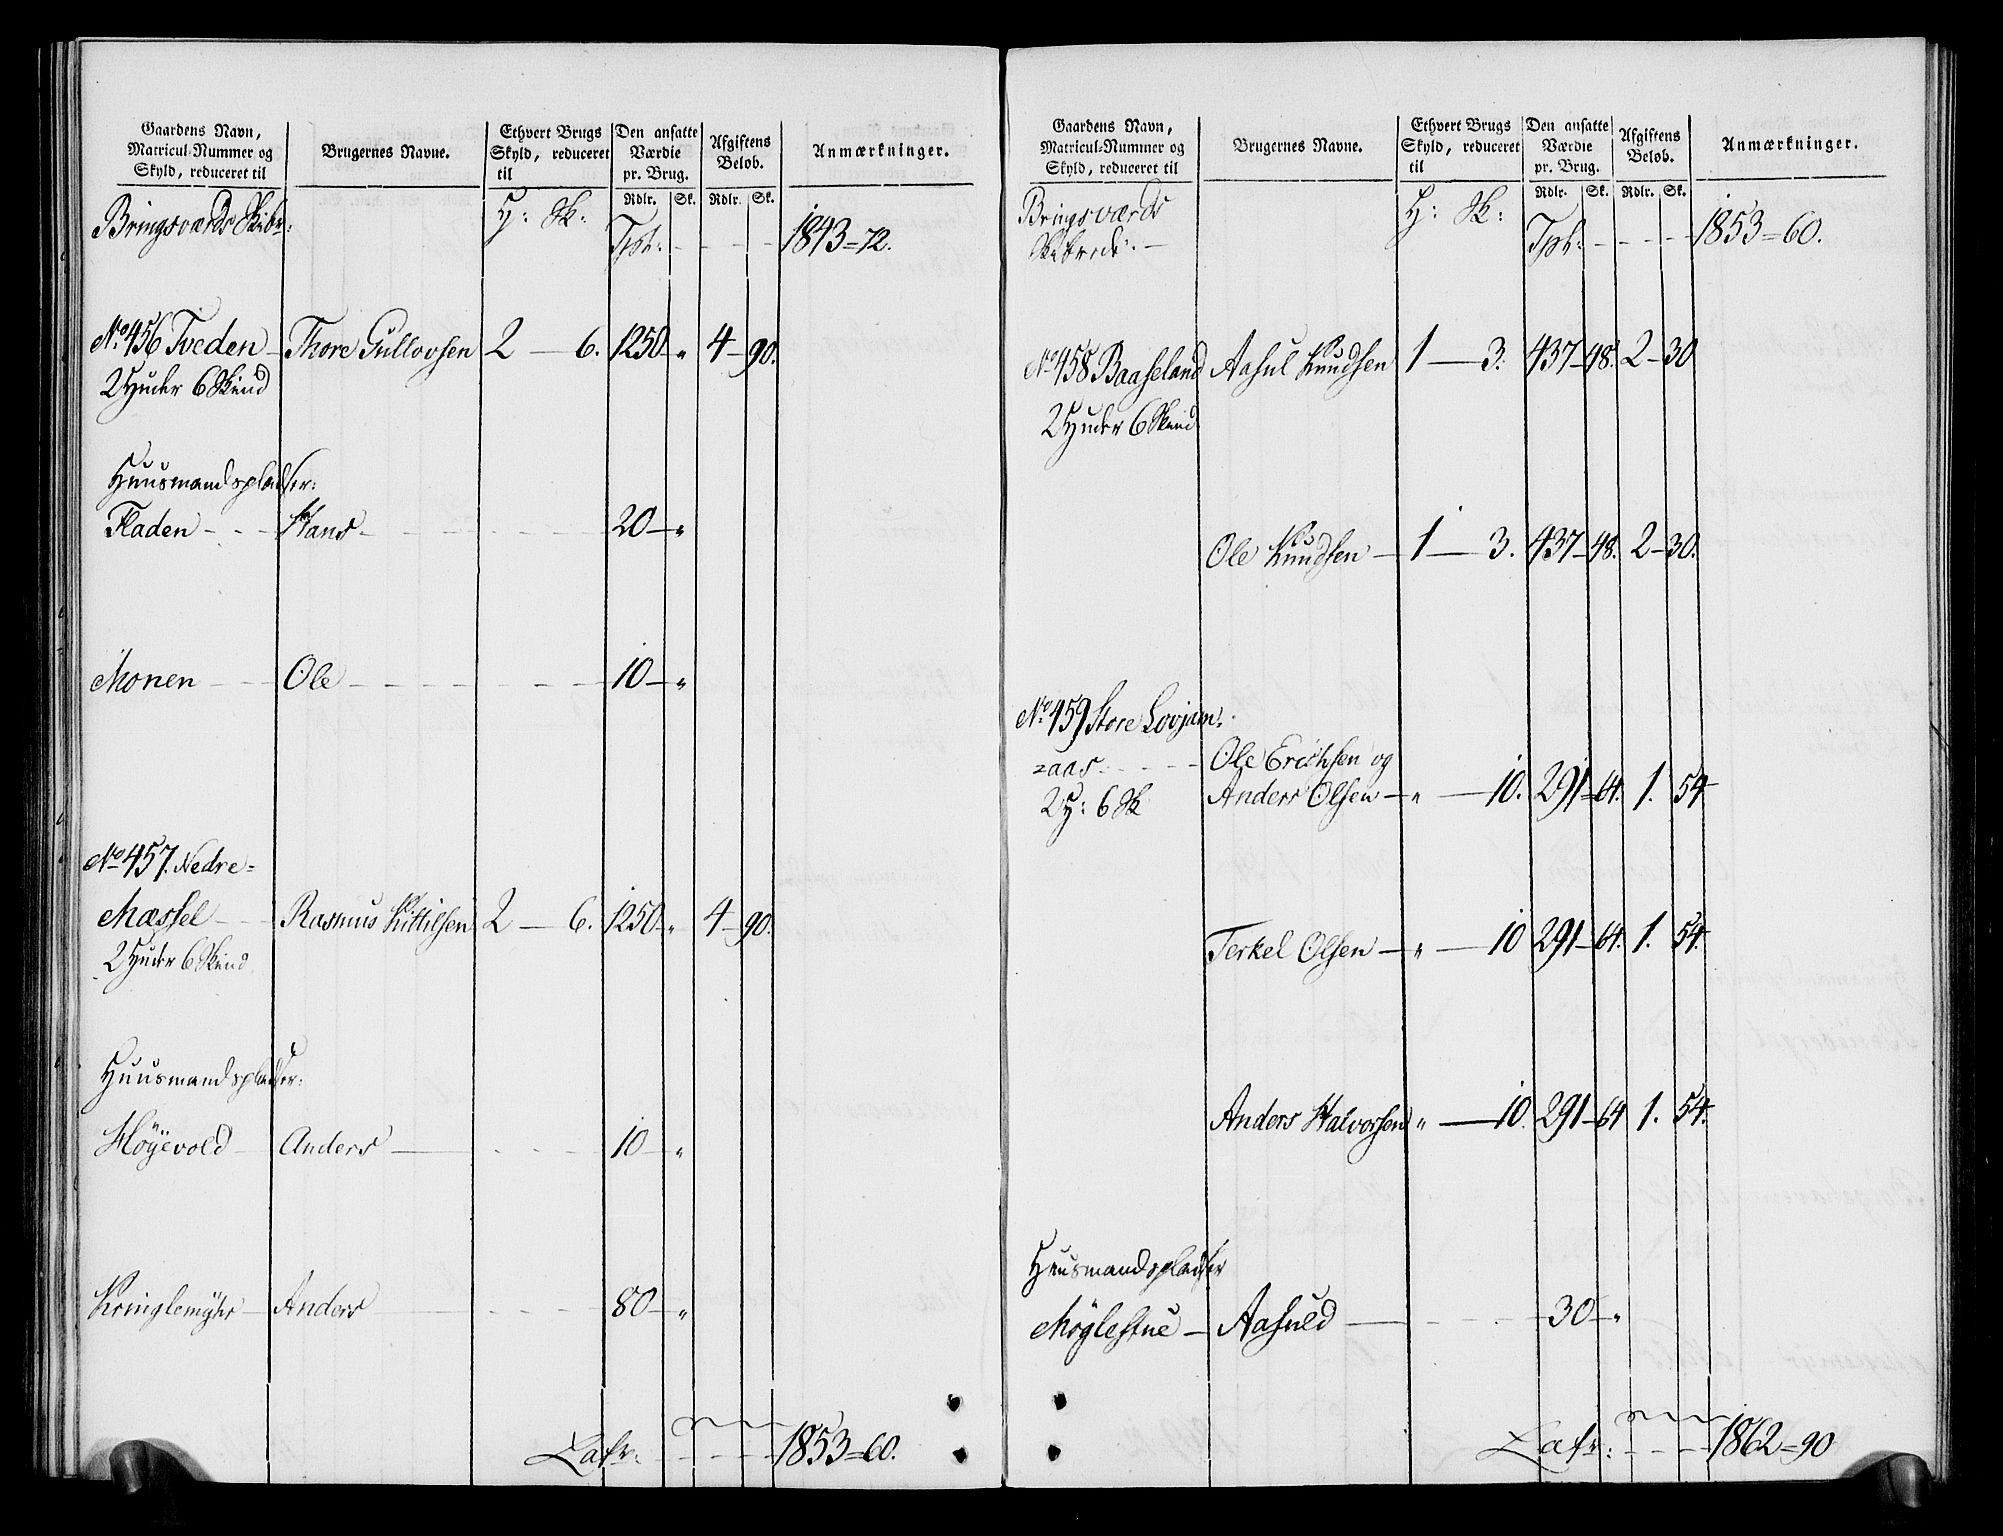 Gaardens Navn,
Matricul-Nummer og
Skyld, reduceret til
Brugernes Navne.
Ethvert Brugs
Skyld, reduceret
til
Den ansatte
Værdie
pr. Brug.
Afgiftens
Beløb.
Anmærkninger.
Rdlr. Sk. Rdlr. Sk.
Bringsværds Skibr: H: Sk: Tpt: - - - - 1843=72.
No 456 Tveden Thore Gullovsen 2 — 6. 1250 „ 4 — 90.
2 Huder 6 Skind
Huusmandspladser:
Fladen - - - Hans - - - 20 — „
Monen - - - Ole - - - 10 — „
No 457. Nedre=
Mæssel - - Rasmus Kittilsen 2 — 6. 1250 „ 4 — 90.
2 Huder 6 Skind
Huusmandspladser:
Höyevold Anders - - - 10 — „
Kringlemyhr Anders - - - 80 — „
Lat. - - - 1853=60.
Gaardens Navn,
Matricul-Nummer og
Skyld, reduceret til
Brugernes Navne.
Ethvert Brugs
Skyld, reduceret
til
Den ansatte
Værdie
pr. Brug.
Afgiftens
Beløb.
Anmærkninger.
Rdlr. Sk. Rdlr. Sk.
Bringsværds H: Sk:
Skibrede: — Tpt: - - - - 1853=60.
No 458 Baaseland Aasul Knudsen 1 — 3. 437 — 48. 2 — 30
2 Huder 6 Skind
Ole Knudsen — 1 — 3. 437 — 48. 2 — 30.
No 459 Store Lovjom=
=aas. - - - Ole Erichsen og
2 H: 6 Sk Anders Olsen — „ — 10. 291 — 64. 1. 54
Terkel Olsen — „ — 10 291 — 64. 1. 54.
Anders Halvorsen „ — 10. 291 — 64 1. 54.
Huusmandspladser
Möglestue — Aasuld — - - - 30 — „
Lat. - - - 1862=90